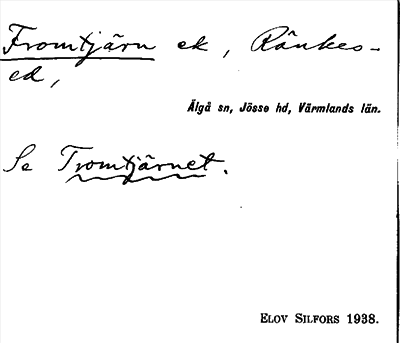 Fromtjärn ek, Rånkes-
ed,
Älgå sn, Jösse hd, Värmlands län.
Se Tromtjärnet.
ELOV SILFORS 1938.